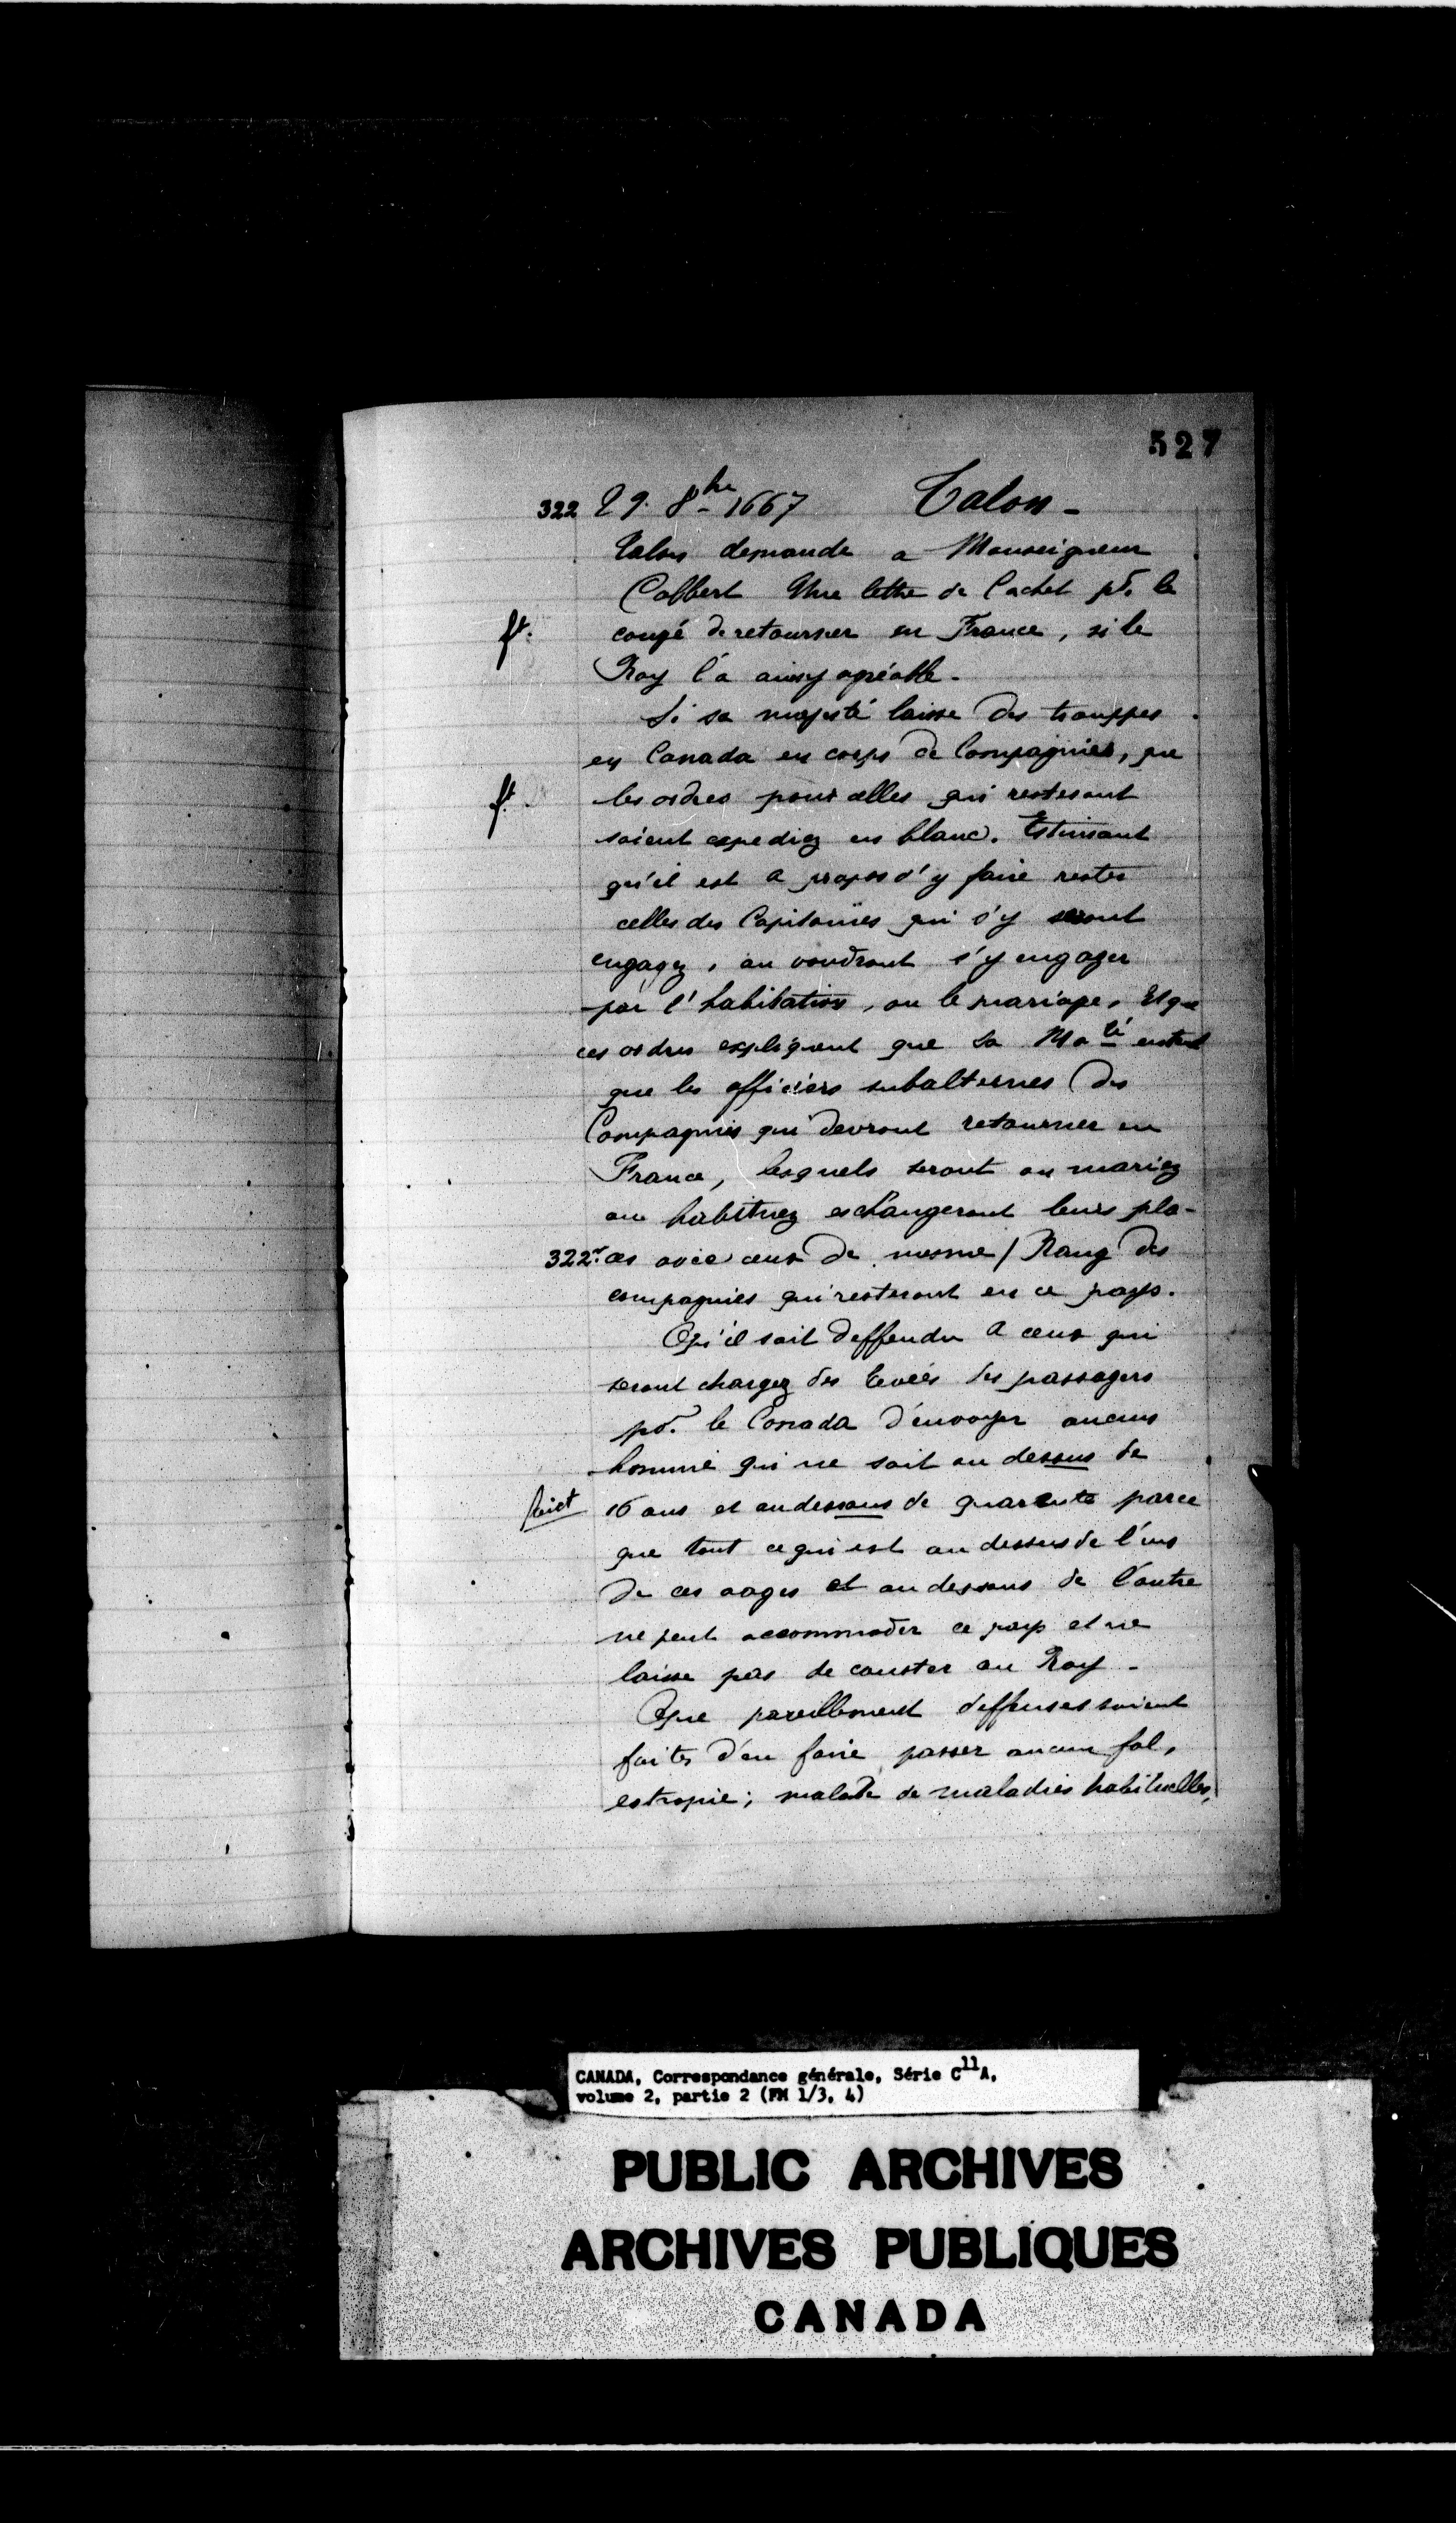 527
322 29. 8bre 1667 Talon -
Talon demande a Monseigneur
Colbert Une lettre de Cachet pr. le
ft. congé de retourner en France, si le
Roy l'a ainsy agréable.
Si sa majesté laisse des trouppes
en Canada en corps de Compagnies, que
ft. les ordres pour celles qui resteront
soient expediez en blanc. Estimant
qu'il est a propos d'y faire rester
celles des Capitaines qui s'y seront
engagez, ou voudront s'y engager
par l'habitation, ou le mariage, Et que
ces ordres expliquent que Sa Maté entend
que les officiers subalternes des
Compagnies qui devront retourner en
France, lesquels seront ou mariez
ou habituez eschangeront leurs pla-
322 vo. ces avec ceux de mesme / Rang des
compagnies qui resteront en ce pays.
Qu'il soit deffendu a ceux qui
seront chargez des levées des passagers
pr. le Canada d'envoyer aucuns
homme qui ne soit au dessus de
16 ans et au dessous de quarente parce
que tout ce qui est au dessus de l'un
de ces aages et au dessous de l'autre
ne peut accommoder ce pays et ne
laisse pas de couster au Roy -
Que pareillement deffenses soient
faites d'en faire passer aucun fol,
estropié; malade de maladies habituelles,
CANADA, Correspondance générale, Série C11A,
volume 2, partie 2 (FM 1/3, 4)
PUBLIC ARCHIVES
ARCHIVES PUBLIQUES
CANADA